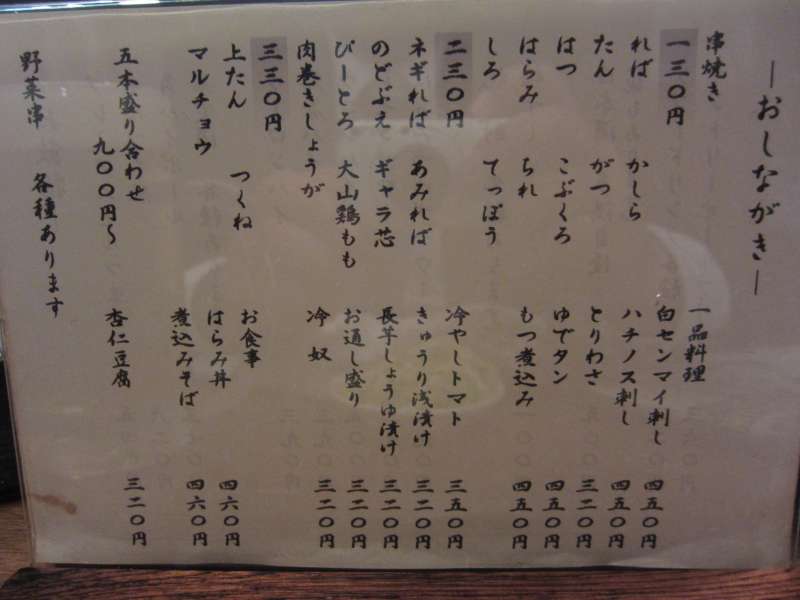 ―おしながき―
串焼き
一三〇円
れば　かしら
たん　がつ
はつ　こぶくろ
はらみ　ちれ
しろ　てっぽう
二三〇円
ネギれば　あみれば
のどぶえ　ギャラ芯
ぴーとろ　大山鶏もも
肉巻きしょうが
三三〇円
上たん　つくね
マルチョウ
五本盛り合わせ
九〇〇円～
野菜串　各種あります
一品料理
白センマイ刺し　四五〇円
ハチノス刺し　四五〇円
とりわさ　三二〇円
ゆでタン　四五〇円
もつ煮込み　四五〇円
冷やしトマト　三五〇円
きゅうり浅漬け　三二〇円
長芋しょうゆ漬け　三二〇円
お通し盛り　三二〇円
冷奴　三二〇円
お食事
はらみ丼　四六〇円
煮込みそば　四六〇円
杏仁豆腐　三二〇円